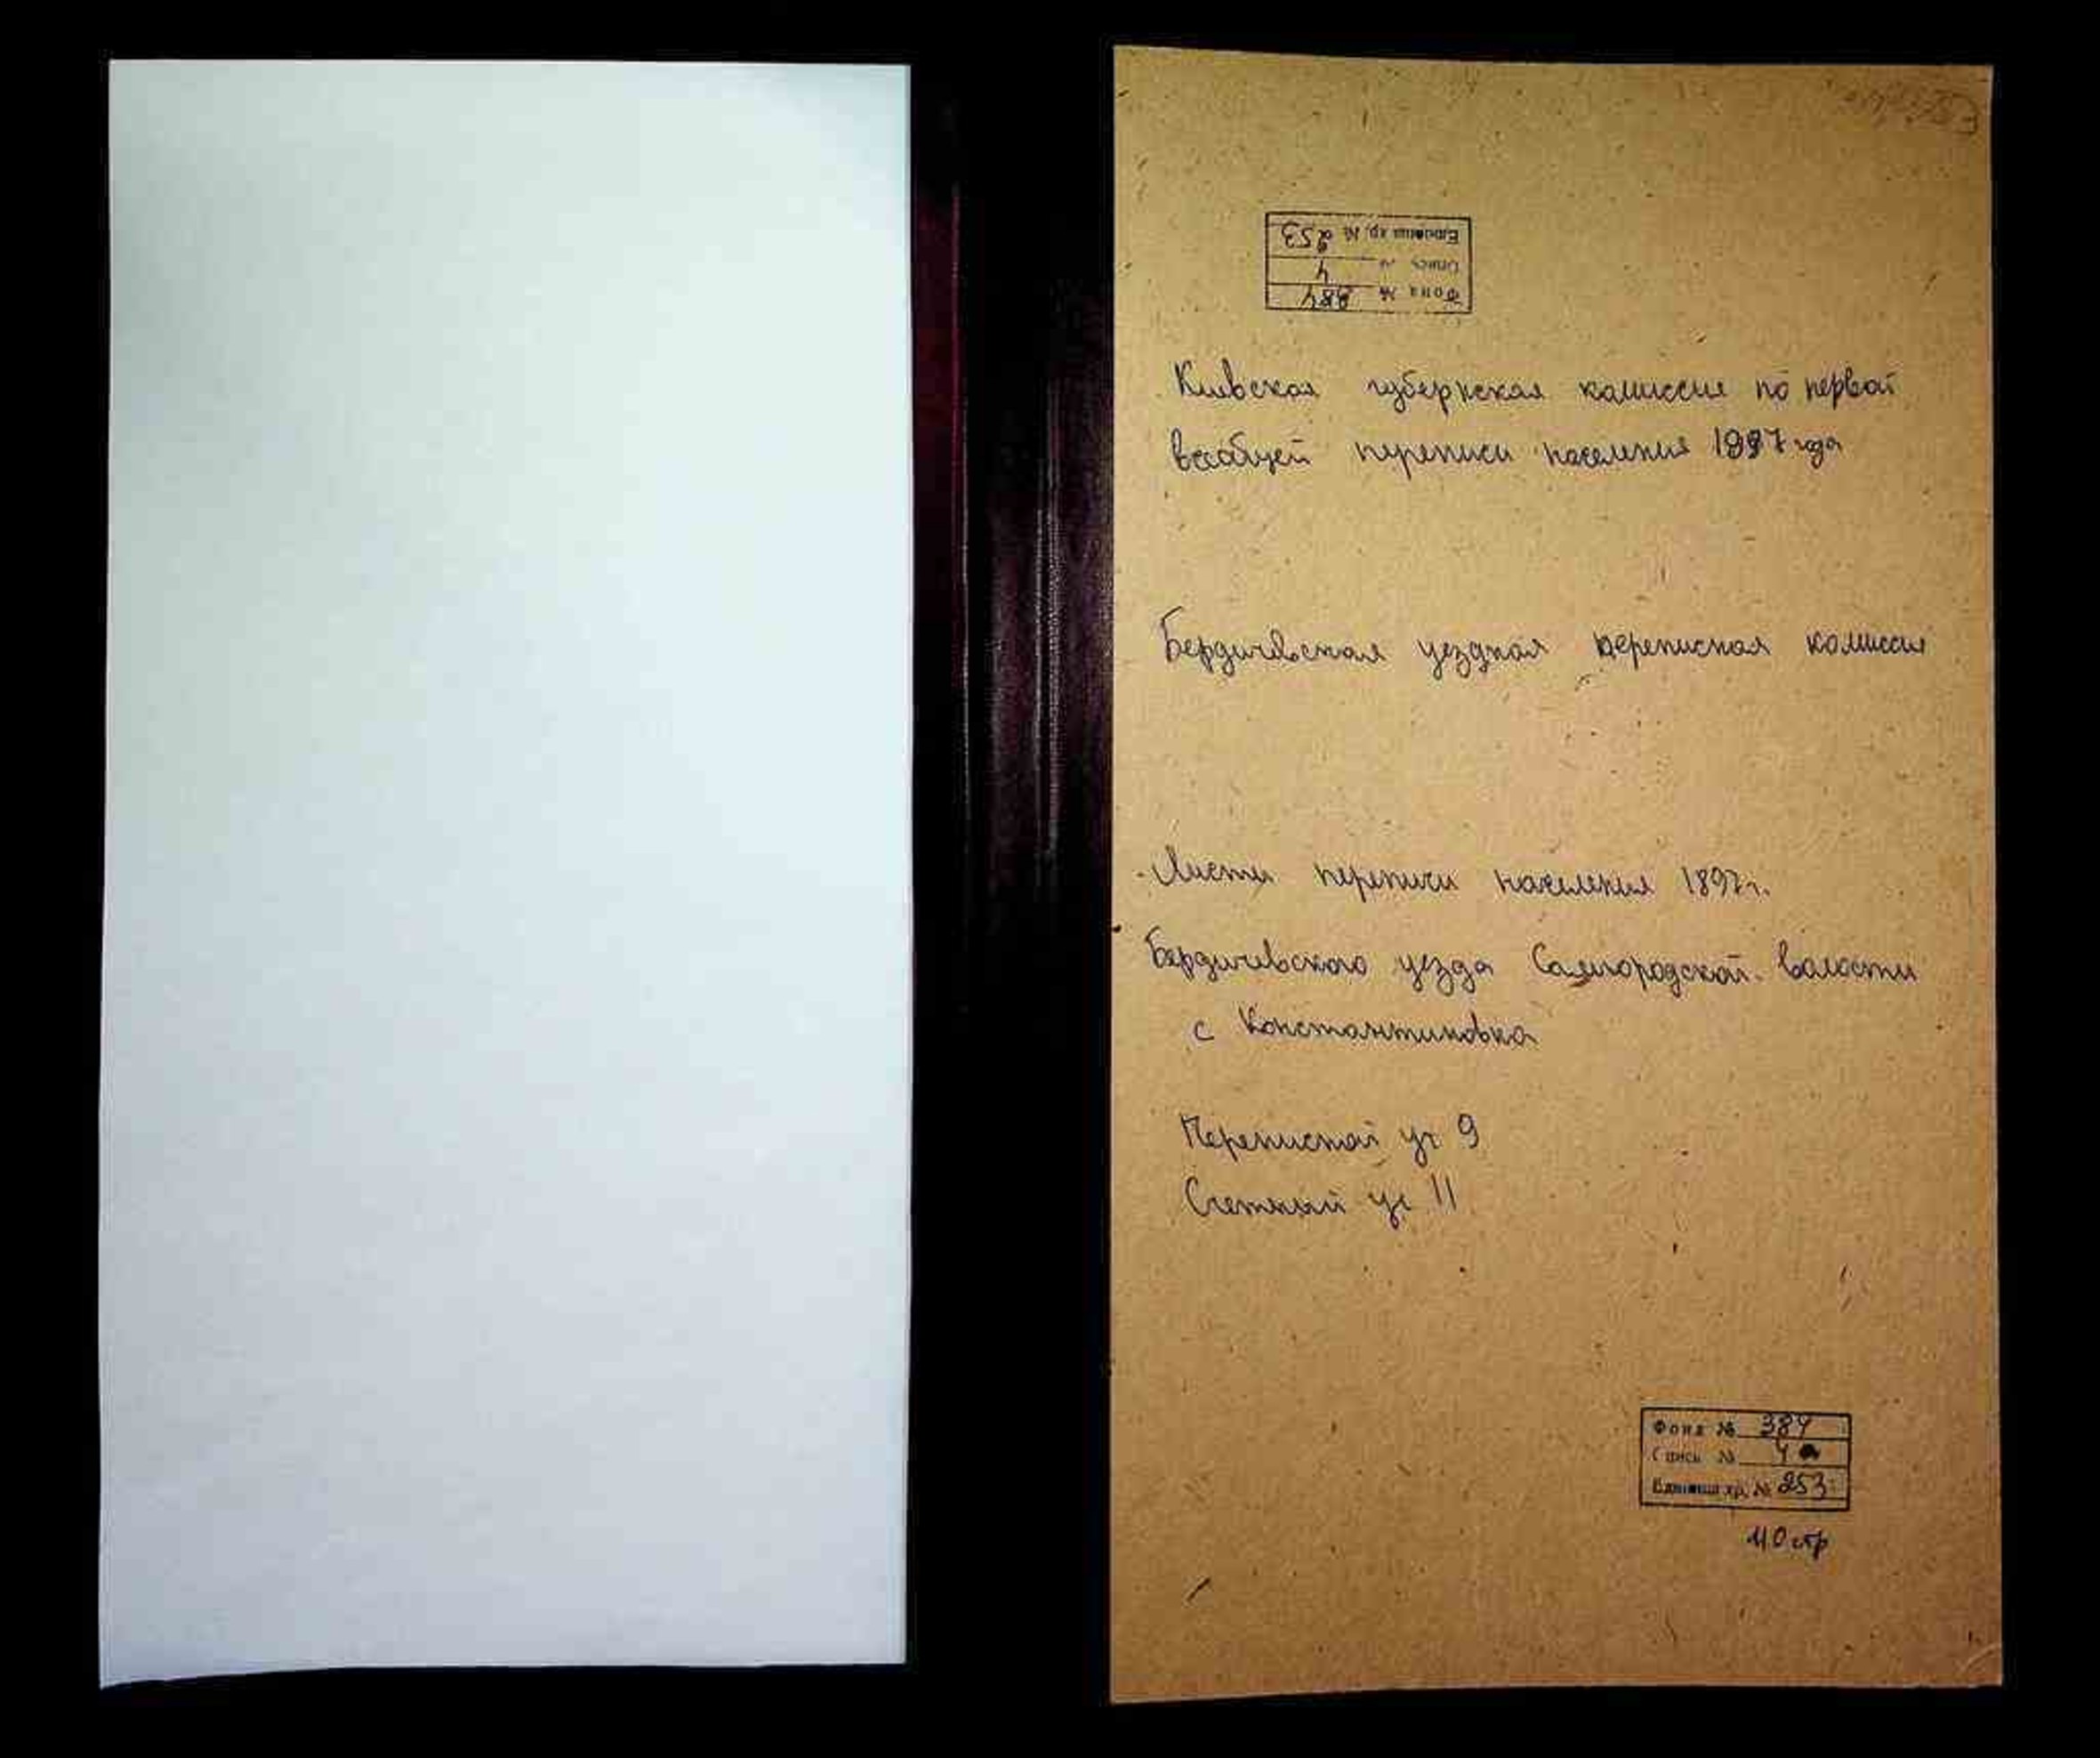 Единица хр. № 253
Опись № 4
Фонд № 384
Киевская губернская комиссия по первой
всеобщей переписи населения 1897 года
Бердичевская уездная переписная комиссия
Листы переписи населения 1897 г.
Бердичевского уезда Самгородской волости
с Константиновка
Переписной уч 9
Счетный уч 11
Фонд № 384
Опись № 4
Единица хр. № 253
110 стр